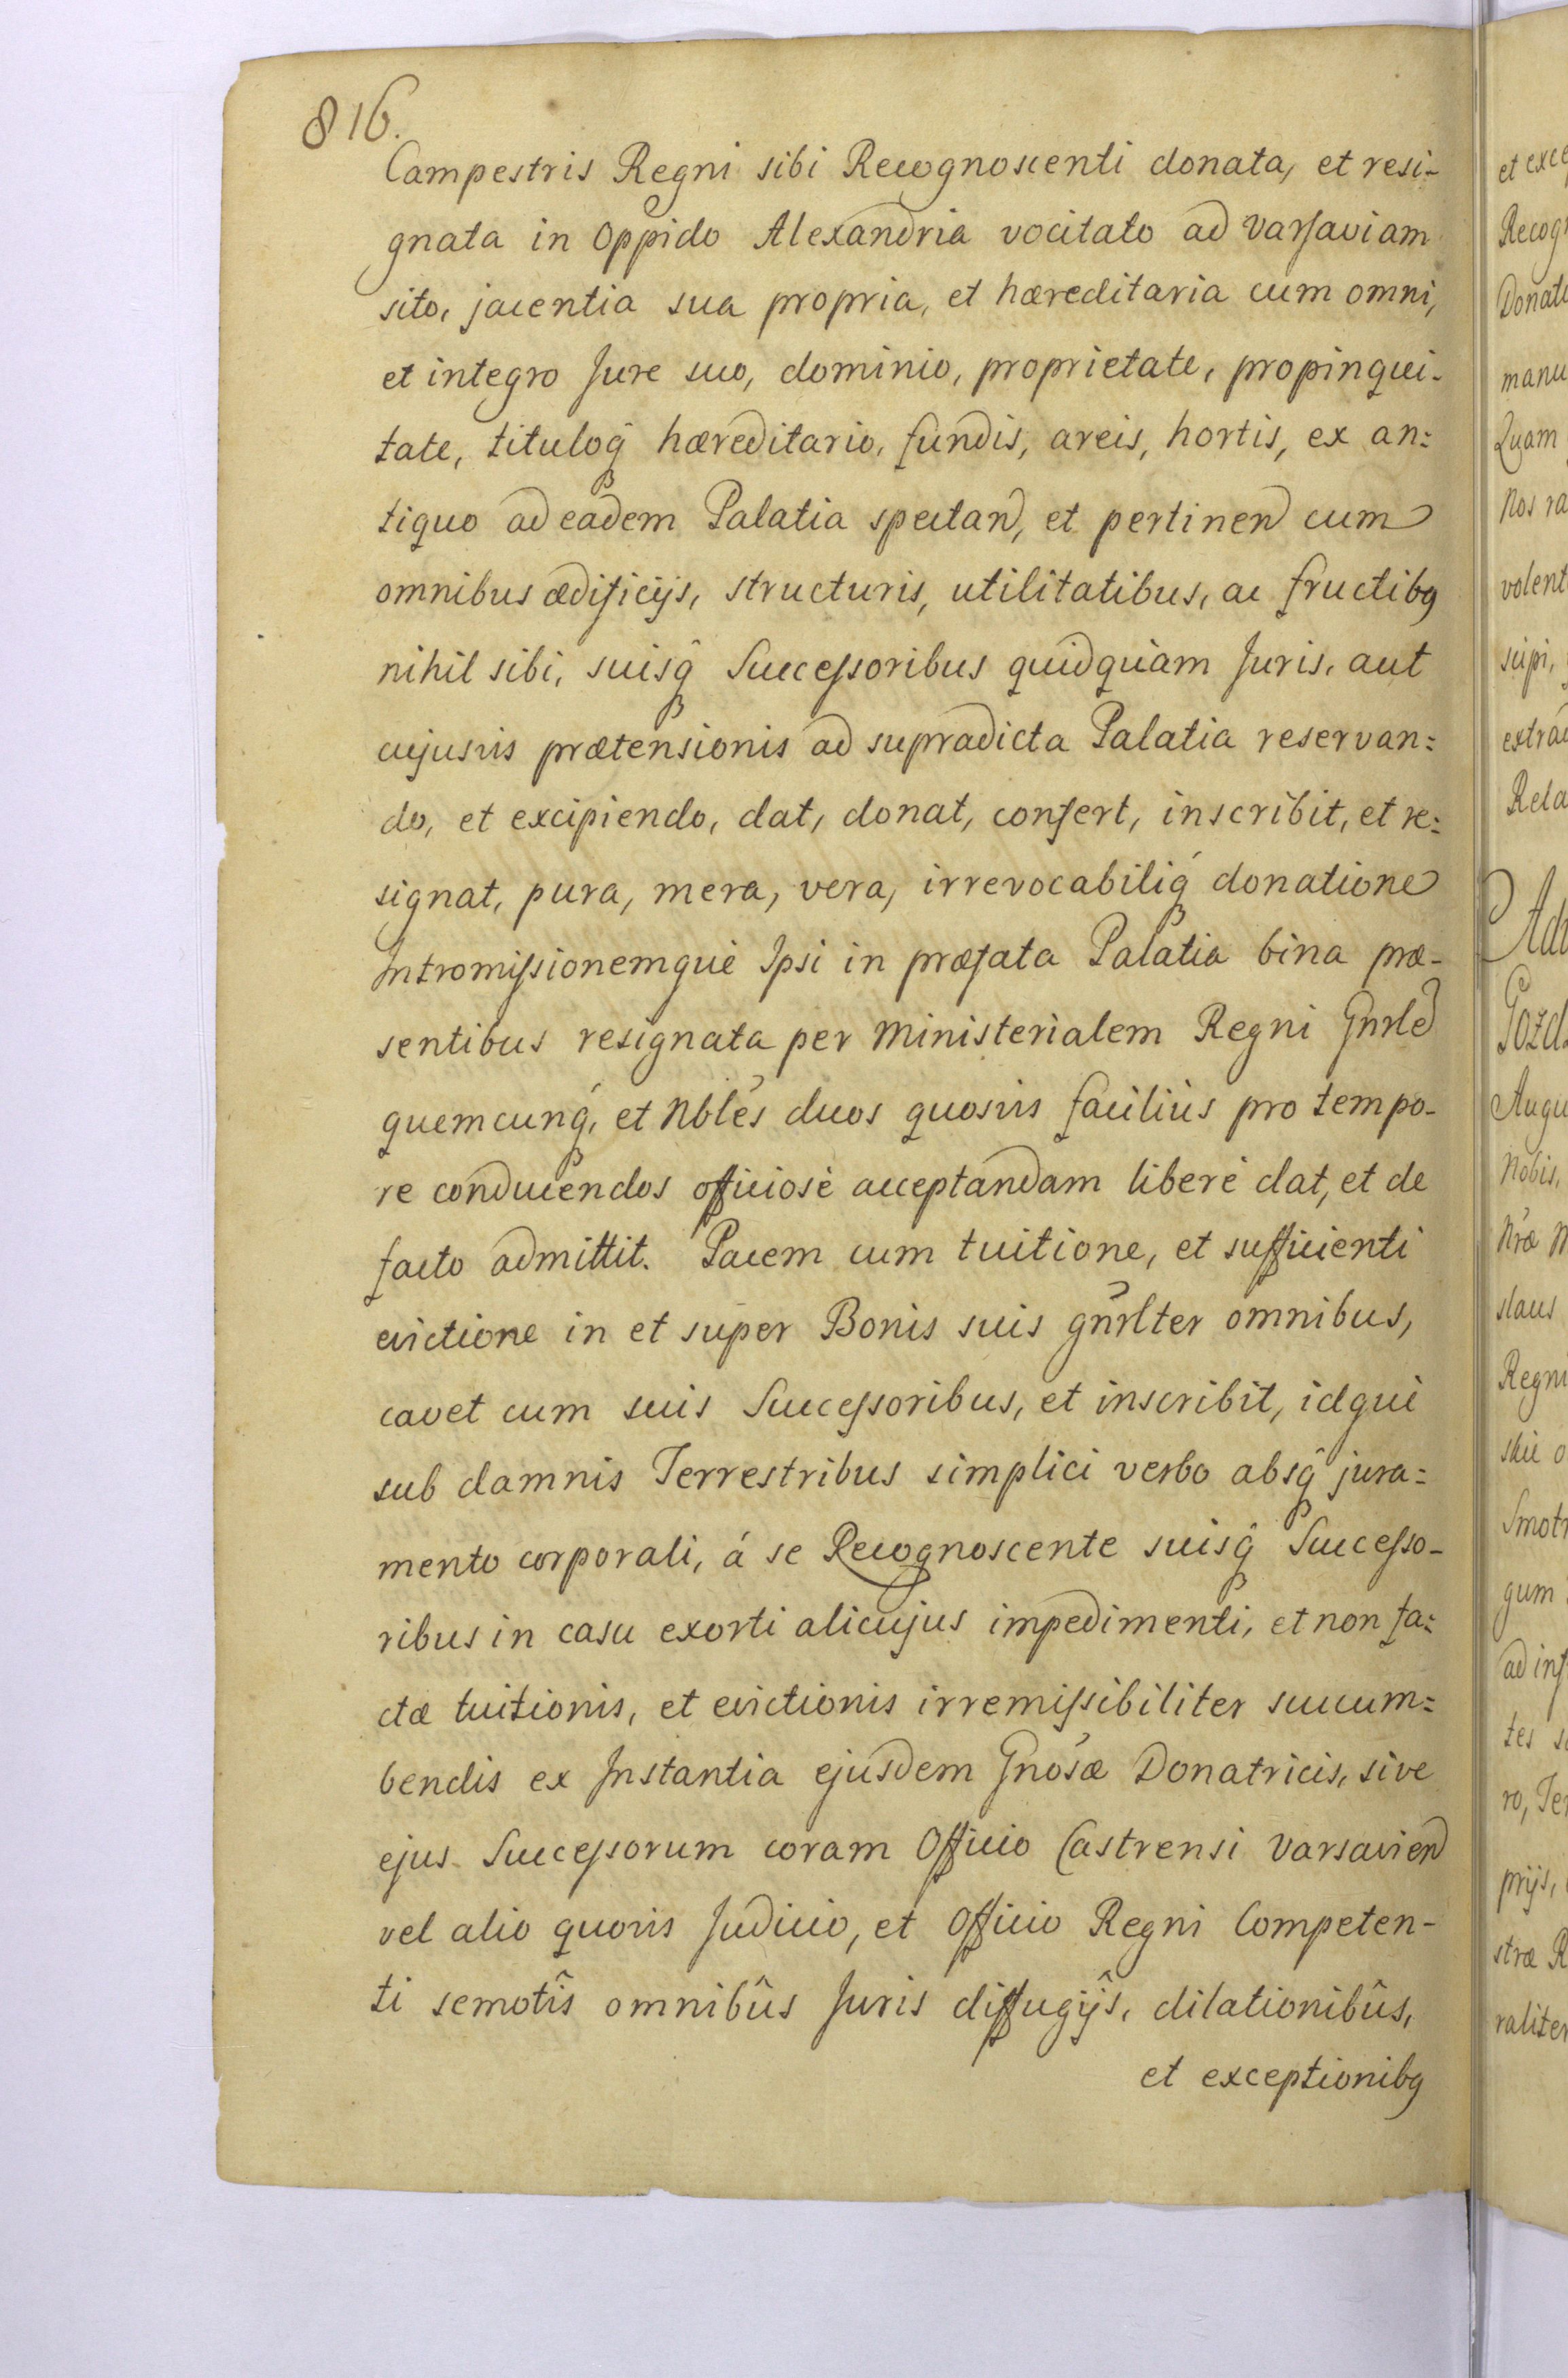 816.
Campestris Regni sibi Recognoscenti donata, et resi-
gnata in Oppido Alexandria vocitato ad Varsaviam
sito, jacentia sua propria, et hæreditaria cum omni,
et integro Jure suo, dominio, proprietate, propinqui-
tate, tituloq̃ hæreditario, fundis, areis, hortis, ex an:
tiquo ad eadem Palatia spectan, et pertinen cum
omnibus ædificijs, structuris, utilitatibus, ac fructibq
nihil sibi, suisq̃ Successoribus quidquam Juris, aut
cujusvis prætensionis ad supradicta Palatia reservan:
do, et excipiendo, dat, donat, confert, inscribit, et re:
signat, pura, mera, vera, irrevocabiliq́ donatione
Intromissionemque Ipsi in præfata Palatia bina præ-
sentibus resignata per Ministerialem Regni Gnrle
quemcunq́, et Nbles duos quosvis facilius pro tempo-
re conducendos officiosè acceptandam liberè dat, et de
facto admittit. Pacem cum tuitione, et sufficienti
evictione in et super Bonis suis gnrlter omnibus,
cavet cum suis Successoribus, et inscribit, idque
sub damnis Terrestribus simplici verbo absq̃ jura:
mento corporali, á se Recognoscente suisq̃ Successo-
ribus in casu exorti alicujus impedimenti, et non fa:
ctæ tuitionis, et evictionis irremissibiliter succum:
bendis ex Instantia ejusdem Gnosæ Donatricis, sive
ejus Successorum coram Officio Castrensi Varsavien
vel alio quovis Judicio, et Officio Regni Competen-
ti semotîs omnibûs Juris diffugijs, dilationibûs,
et exceptionibq
et exce
Recog
Donat
manu
Quam
Nos ra
volent
extra
Rela
Gozd
Augu
Nobis,
slaus
Regni
Smot
gum
ad inf
tes
ro, Ter
prijs,
stræ R
raliter